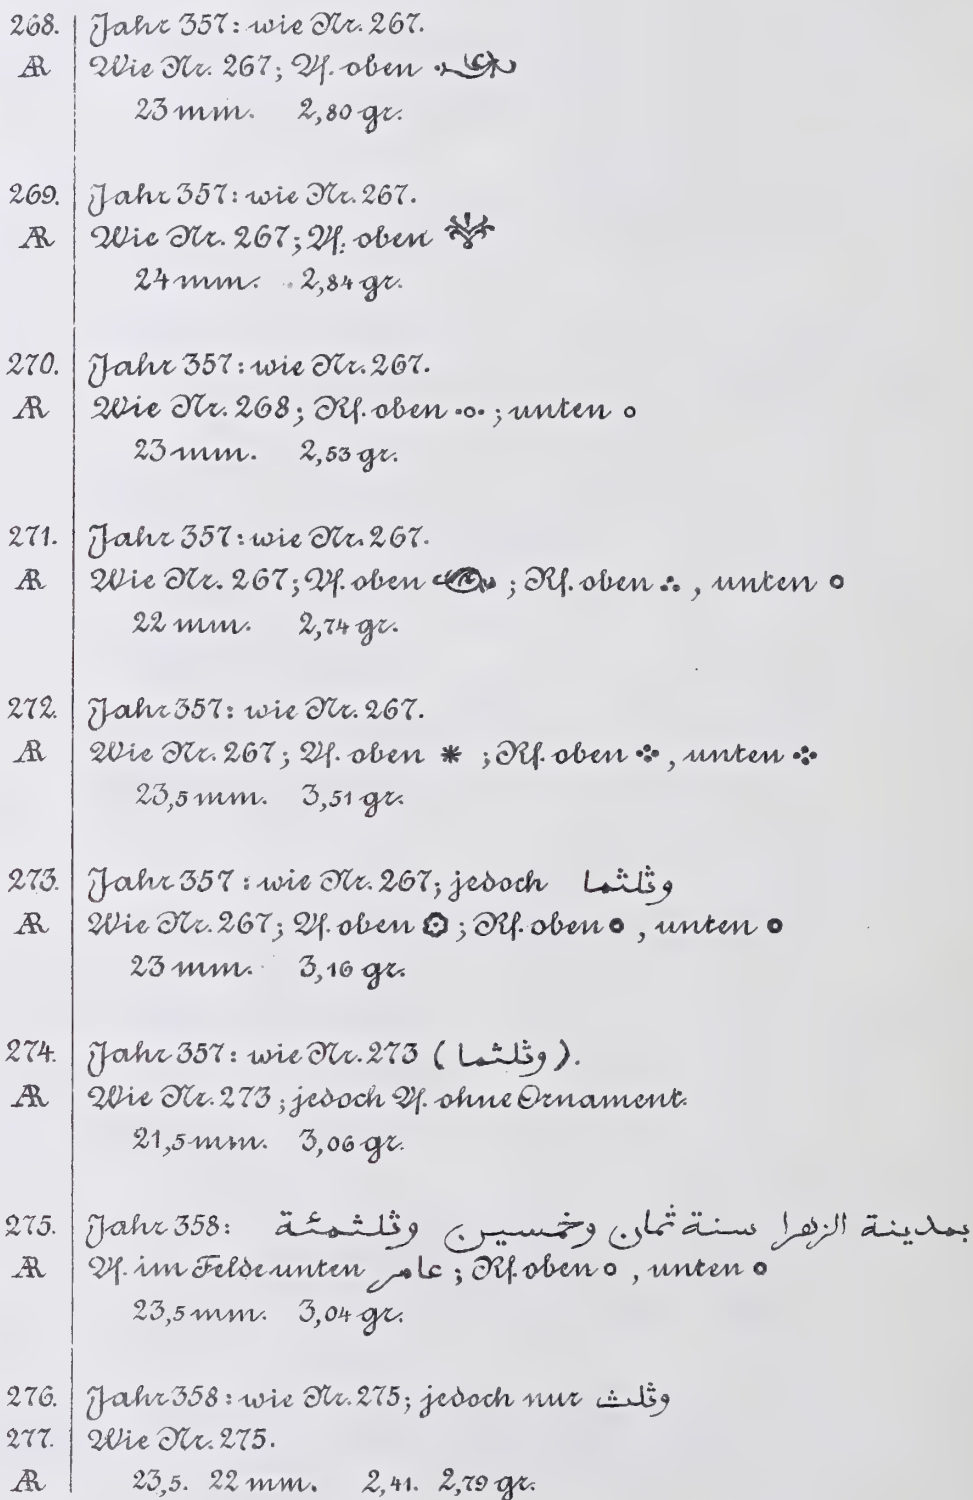 268. Jahr 357: wie Nr. 267.
AR Wie Nr. 267; Vf. oben
23 mm. 2,80 gr.
269. Jahr 357: wie Nr. 267.
AR Wie Nr. 267; Vf. oben
24 mm. 2,84 gr.
270. Jahr 357: wie Nr. 267.
AR Wie Nr. 268; Rf. oben •o•; unten o
23 mm. 2,53 gr.
271. Jahr 357: wie Nr. 267.
AR Wie Nr. 267; Vf. oben ; Rf. oben ∴, unten o
22 mm. 2,74 gr.
272. Jahr 357: wie Nr. 267.
AR Wie Nr. 267; Vf. oben * ; Rf. oben ⁘, unten ⁘
23,5 mm. 3,51 gr.
273. Jahr 357: wie Nr. 267; jedoch وثلثما
AR Wie Nr. 267; Vf. oben ; Rf. oben o, unten o
23 mm. 3,16 gr.
274. Jahr 357: wie Nr. 273 (وثلثما).
AR Wie Nr. 273; jedoch Vf. ohne Ornament.
21,5 mm. 3,06 gr.
275. Jahr 358: بمدينة الزهرا سنة ثمان وخمسين وثلثمئة
AR Vf. im Felde unten عامر; Rf. oben o, unten o
23,5 mm. 3,04 gr.
276. Jahr 358: wie Nr. 275; jedoch nur وثلث
277. Wie Nr. 275.
AR 23,5. 22 mm. 2,41. 2,79 gr.